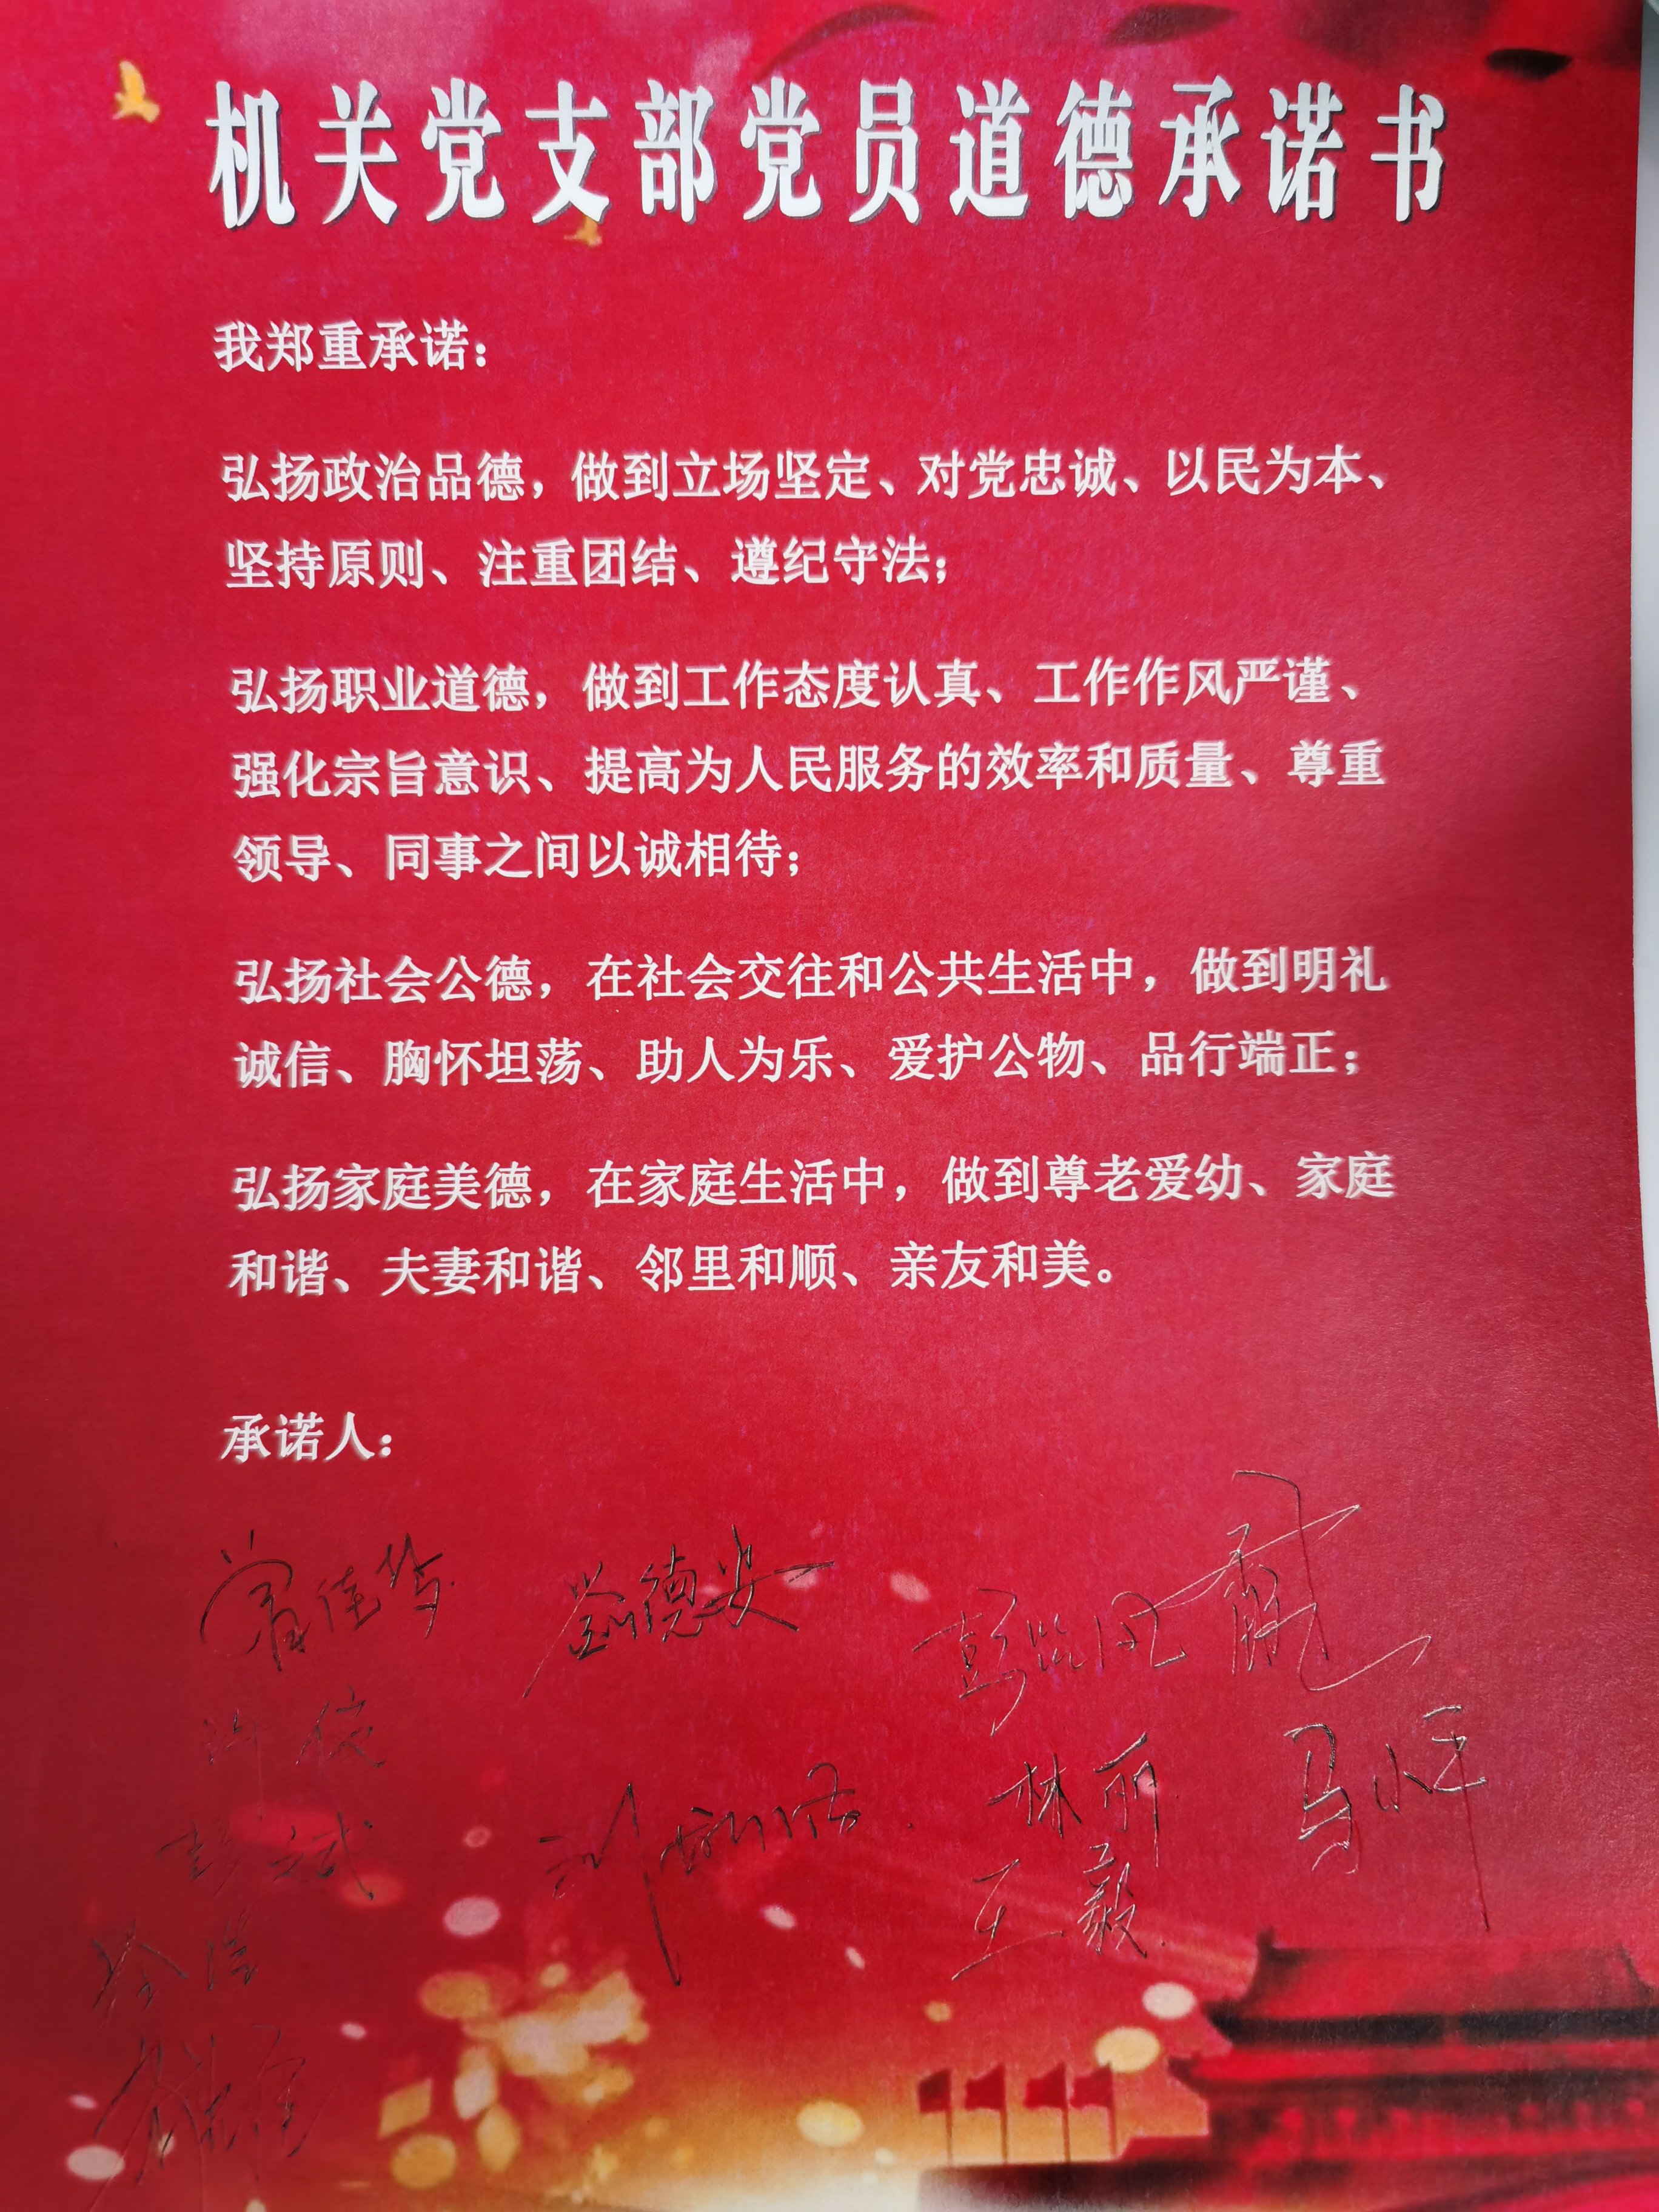 机关党支部党员道德承诺书
我郑重承诺：
弘扬政治品德，做到立场坚定、对党忠诚、以民为本、
坚持原则、注重团结、遵纪守法；
弘扬职业道德，做到工作态度认真、工作作风严谨、
强化宗旨意识、提高为人民服务的效率和质量、尊重
领导、同事之间以诚相待；
弘扬社会公德，在社会交往和公共生活中，做到明礼
诚信、胸怀坦荡、助人为乐、爱护公物、品行端正；
弘扬家庭美德，在家庭生活中，做到尊老爱幼、家庭
和谐、夫妻和谐、邻里和顺、亲友和美。
承诺人：
曾佳华 劉德安
林丽 马小平
王毅